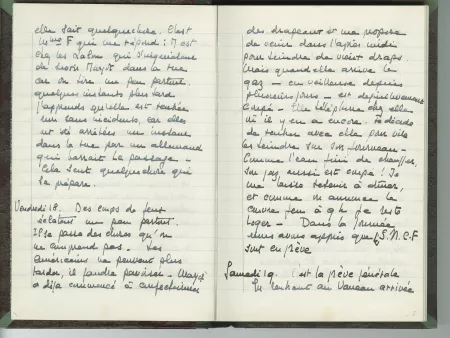 elle sait quelque chose. C'est
Mme F qui me répond : M est
chez les Laton qui s'inquiètent
de savoir Margot dans la rue
car on tire un peu partout.
quelques instants plus tard
j'apprends qu'elle est rentrée
sans incidents, car elles
ont été arrêtées un instant
dans la rue par un allemand
qui barrait le passage -
Cela sent quelque chose qui
se prépare.
Vendredi 18. Des coups de feu
éclatent un peu partout.
Il se passe des choses qu'on
ne comprend pas. Les
Américains ne peuvent plus
tarder, il faudra pavoiser - Margot
a déjà commencé à confectionner
des drapeaux et me propose
de venir dans l'après midi
pour teindre de vieux draps.
Mais quand elle arrive le
gaz - en veilleuse depuis
plusieurs jours - est
coupé - Elle téléphone chez elle
où il y en a encore. Je décide
de rentrer avec elle pour
les teindre sur son fourneau.
Comme l'eau finit de chauffer,
son gaz aussi est coupé ! Je
me laisse retenir à dîner,
et comme on annonce le
couvre feu à 9h je reste
loger - Dans la journée
nous avons appris que S.N.C.F
sont en grève
Samedi 19. C'est la grève générale
En rentrant au Vaneau arrivée